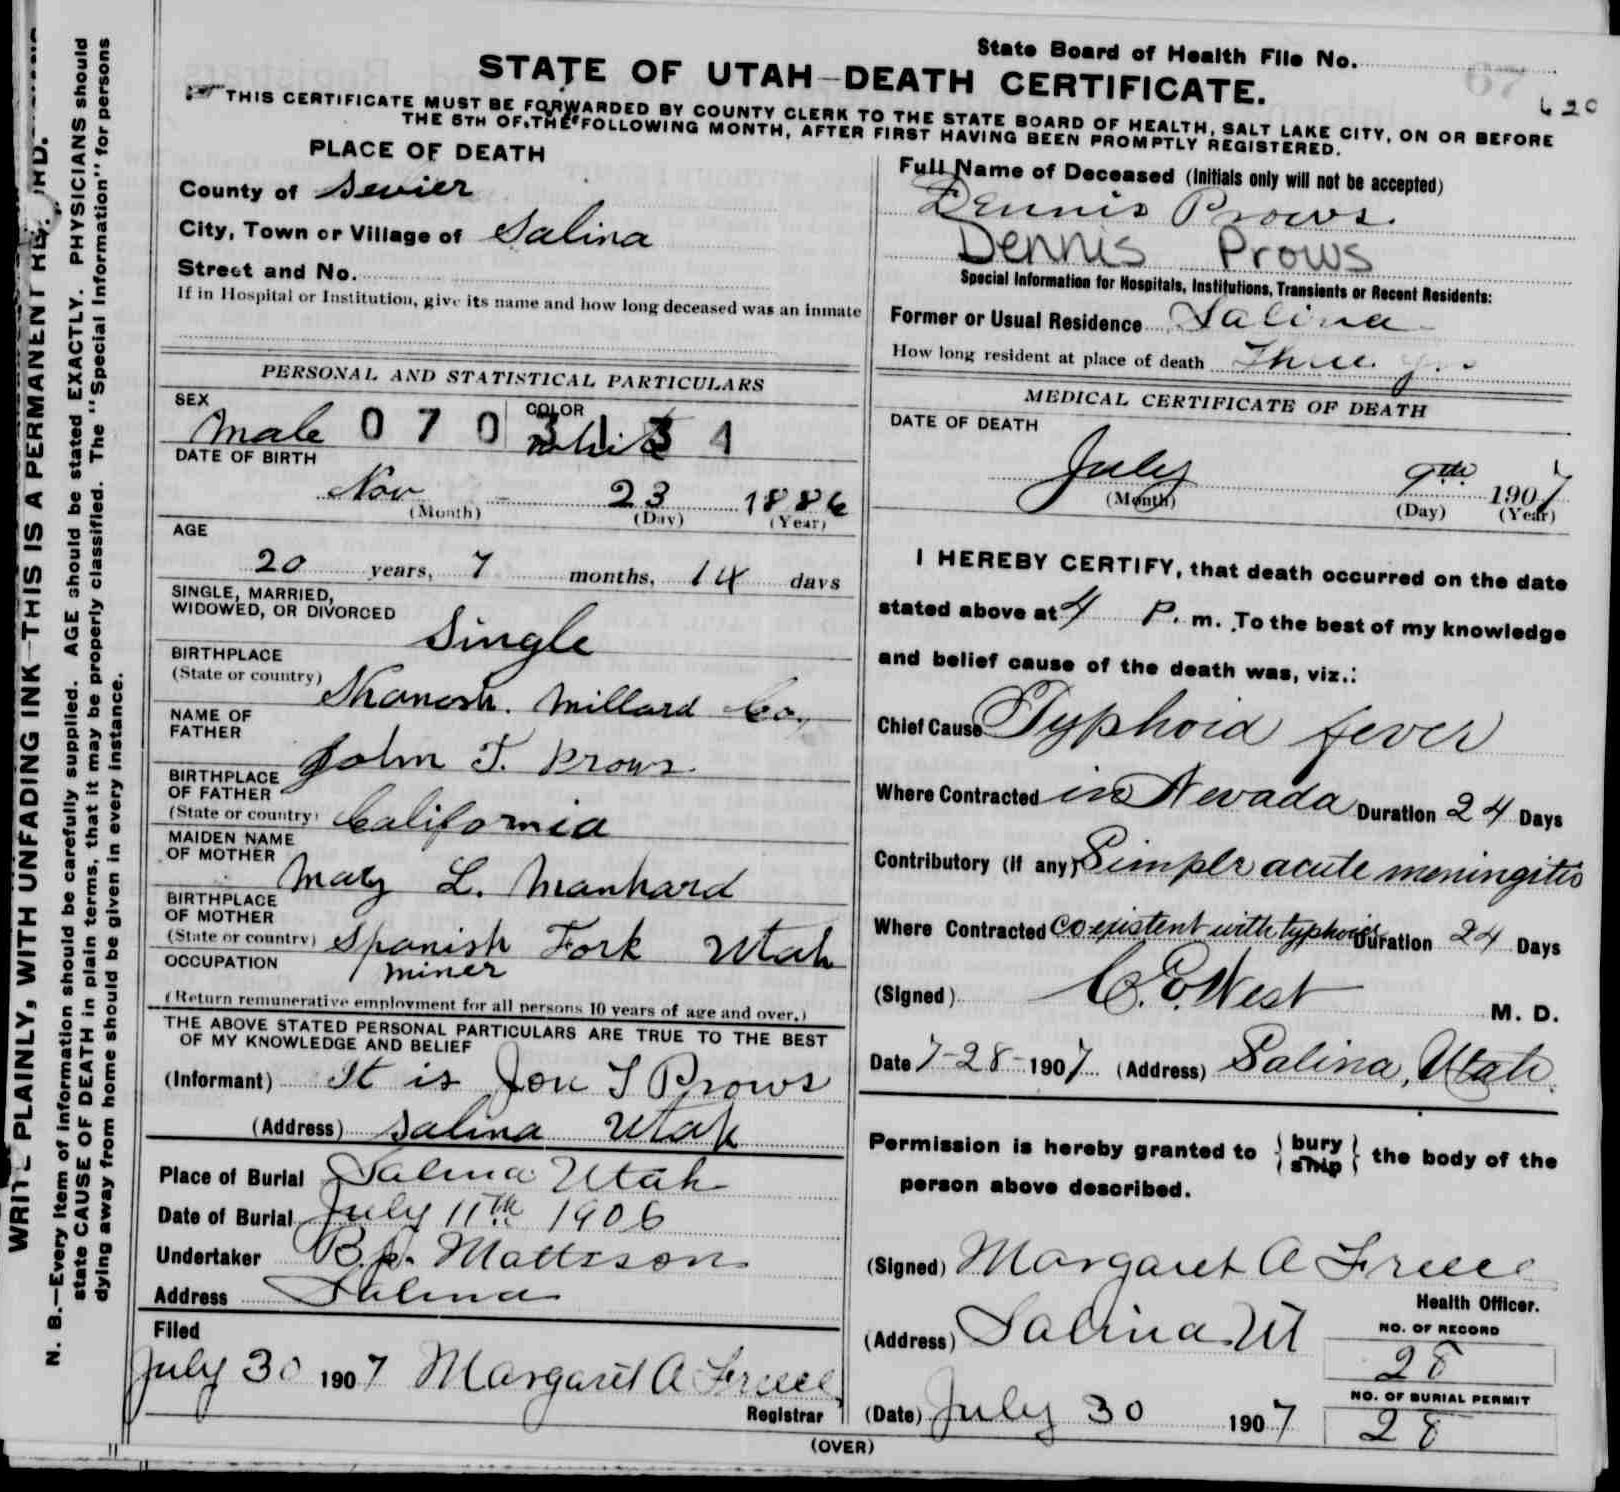 State Board of Health File No.
STATE OF UTAH-DEATH CERTIFICATE.
620
THIS CERTIFICATE MUST BE FORWARDED BY COUNTY CLERK TO THE STATE BOARD OF HEALTH, SALT LAKE CITY, ON OR BEFORE
THE 5TH OF THE FOLLOWING MONTH, AFTER FIRST HAVING BEEN PROMPTLY REGISTERED.
PLACE OF DEATH
County of Sevier
City, Town or Village of Salina
Street and No.
If in Hospital or Institution, give its name and how long deceased was an inmate
Full Name of Deceased (Initials only will not be accepted)
Dennis Prows.
Dennis Prows
Special Information for Hospitals, Institutions, Transients or Recent Residents:
Former or Usual Residence Salina
How long resident at place of death Three yrs
PERSONAL AND STATISTICAL PARTICULARS
SEX
COLOR
Male 0 7 0 3 1 3 1 White
DATE OF BIRTH
Nov 23 1886
(Month) (Day) (Year)
AGE
20 years, 7 months, 14 days
SINGLE, MARRIED,
WIDOWED, OR DIVORCED
Single
BIRTHPLACE
(State or country)
Kanosh. Millard Co,
NAME OF
FATHER
John T. Prows
BIRTHPLACE
OF FATHER
(State or country) California
MAIDEN NAME
OF MOTHER
Mary L. Manhard
BIRTHPLACE
OF MOTHER
(State or country) Spanish Fork Utah
OCCUPATION miner
(Return remunerative employment for all persons 10 years of age and over.)
THE ABOVE STATED PERSONAL PARTICULARS ARE TRUE TO THE BEST
OF MY KNOWLEDGE AND BELIEF
(Informant) It is Prows
(Address) Salina Utah
Place of Burial Salina Utah
Date of Burial July 11th 1906
Undertaker Mattsson
Address Salina
Filed
July 30 1907 Margaret A
Registrar
MEDICAL CERTIFICATE OF DEATH
DATE OF DEATH
July 9th 1907
(Month) (Day) (Year)
I HEREBY CERTIFY, that death occurred on the date
stated above at 4 P. m. To the best of my knowledge
and belief cause of the death was, viz.:
Chief Cause Typhoid fever
Where Contracted in Nevada Duration 24 Days
Contributory (if any) Simple acute meningitis
Where Contracted Coexistent with typhoid Duration 24 Days
(Signed) C. E. West M. D.
Date 7-28-1907 (Address) Salina, Utah.
Permission is hereby granted to { bury ship } the body of the
person above described.
(Signed) Margaret A
Health Officer.
(Address) Salina Ut
NO. OF RECORD
28
NO. OF BURIAL PERMIT
28
(Date) July 30 1907
(OVER)
WRITE PLAINLY, WITH UNFADING INK-THIS IS A PERMANENT
N. B.—Every item of information should be carefully supplied. AGE should be stated EXACTLY. PHYSICIANS should
state CAUSE OF DEATH in plain terms, that it may be properly classified. The "Special Information" for persons
dying away from home should be given in every instance.